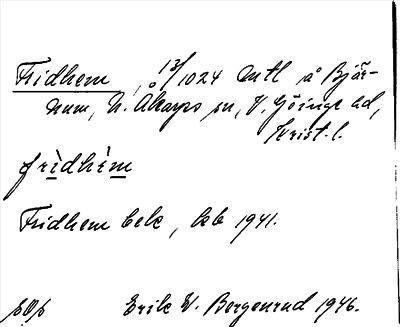 Fridhem, 13/1024 mtl å Bjär-
num, N. Åkarps sn, V. Göinge hd,
Krist. l.
frìdhèm
Fridhem bek, kb 1941.
Erik W. Bergenrud 1946.